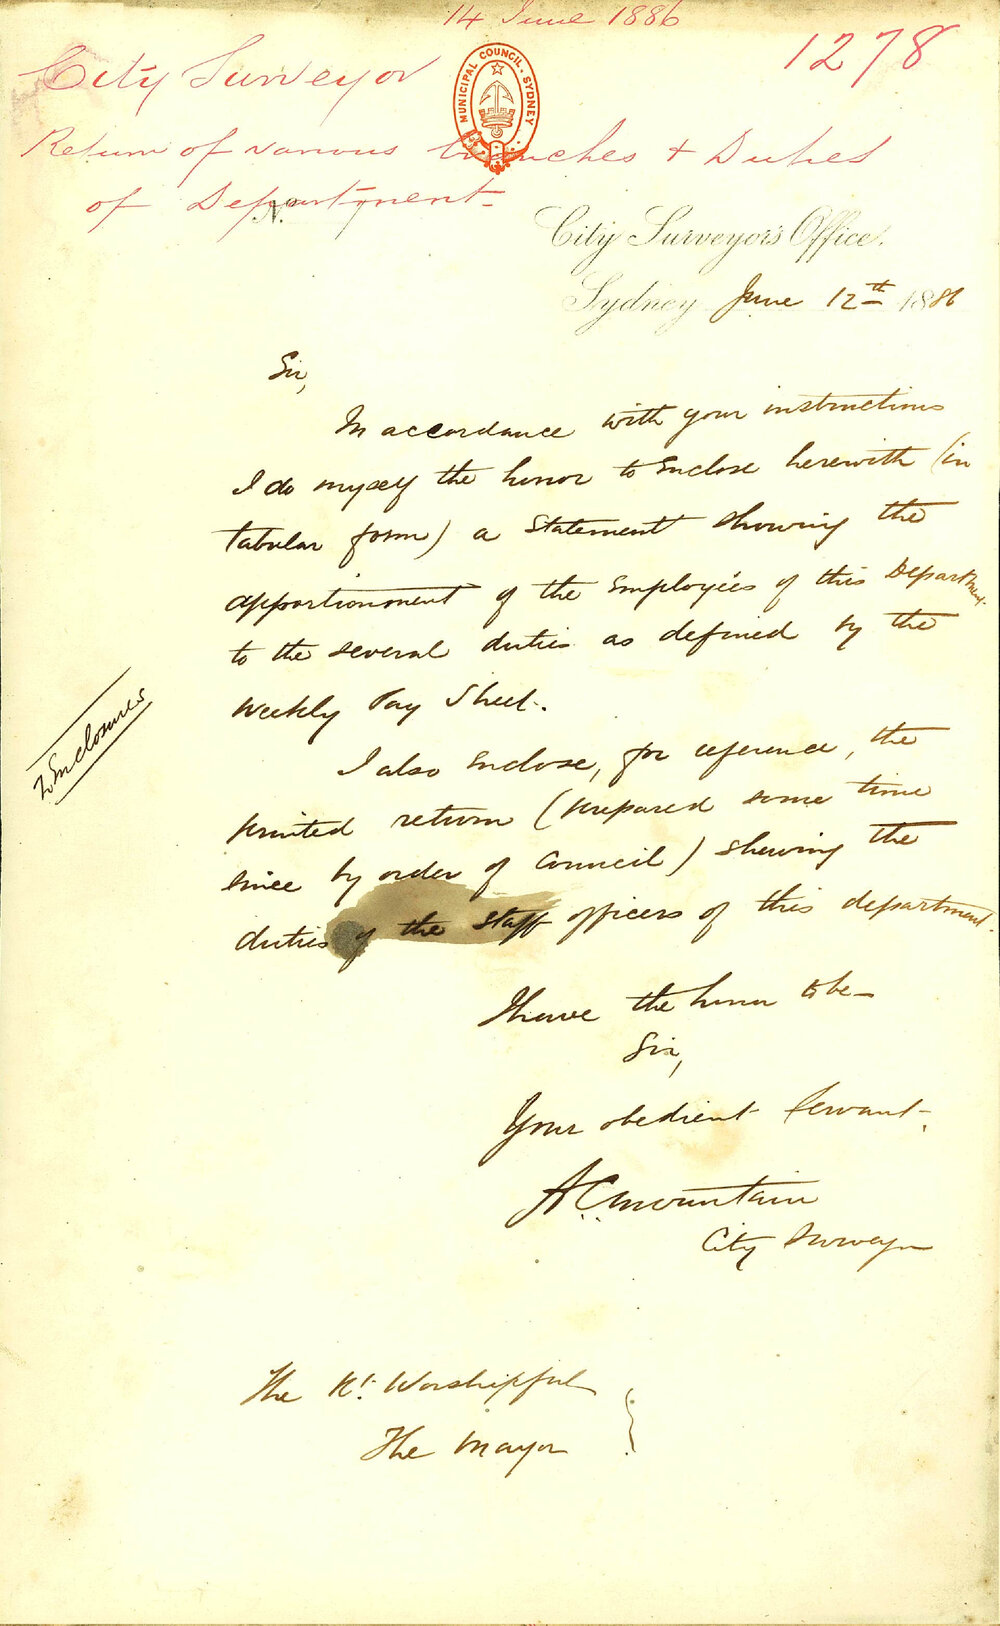 14 June 1886
1278
City Surveyor
MUNICIPAL COUNCIL. SYDNEY
Return of various branches & Duties
of Department
No.
City Surveyor's Office.
Sydney June 12th 1886
Sir,
In accordance with your instructions
I do myself the honor to Enclose herewith (in
tabular form) a Statement showing the
apportionment of the Employées of this Department
to the several duties as defined by the
Weekly Pay Sheet.
I also Enclose, for reference, the
printed return (prepared some time
since by order of Council) shewing the
duties of the Staff officers of this department.
2 Enclosures
I have the honor to be
Sir,
Your obedient Servant
A C Mountain
City Surveyor
The Rt. Worshipful
The Mayor